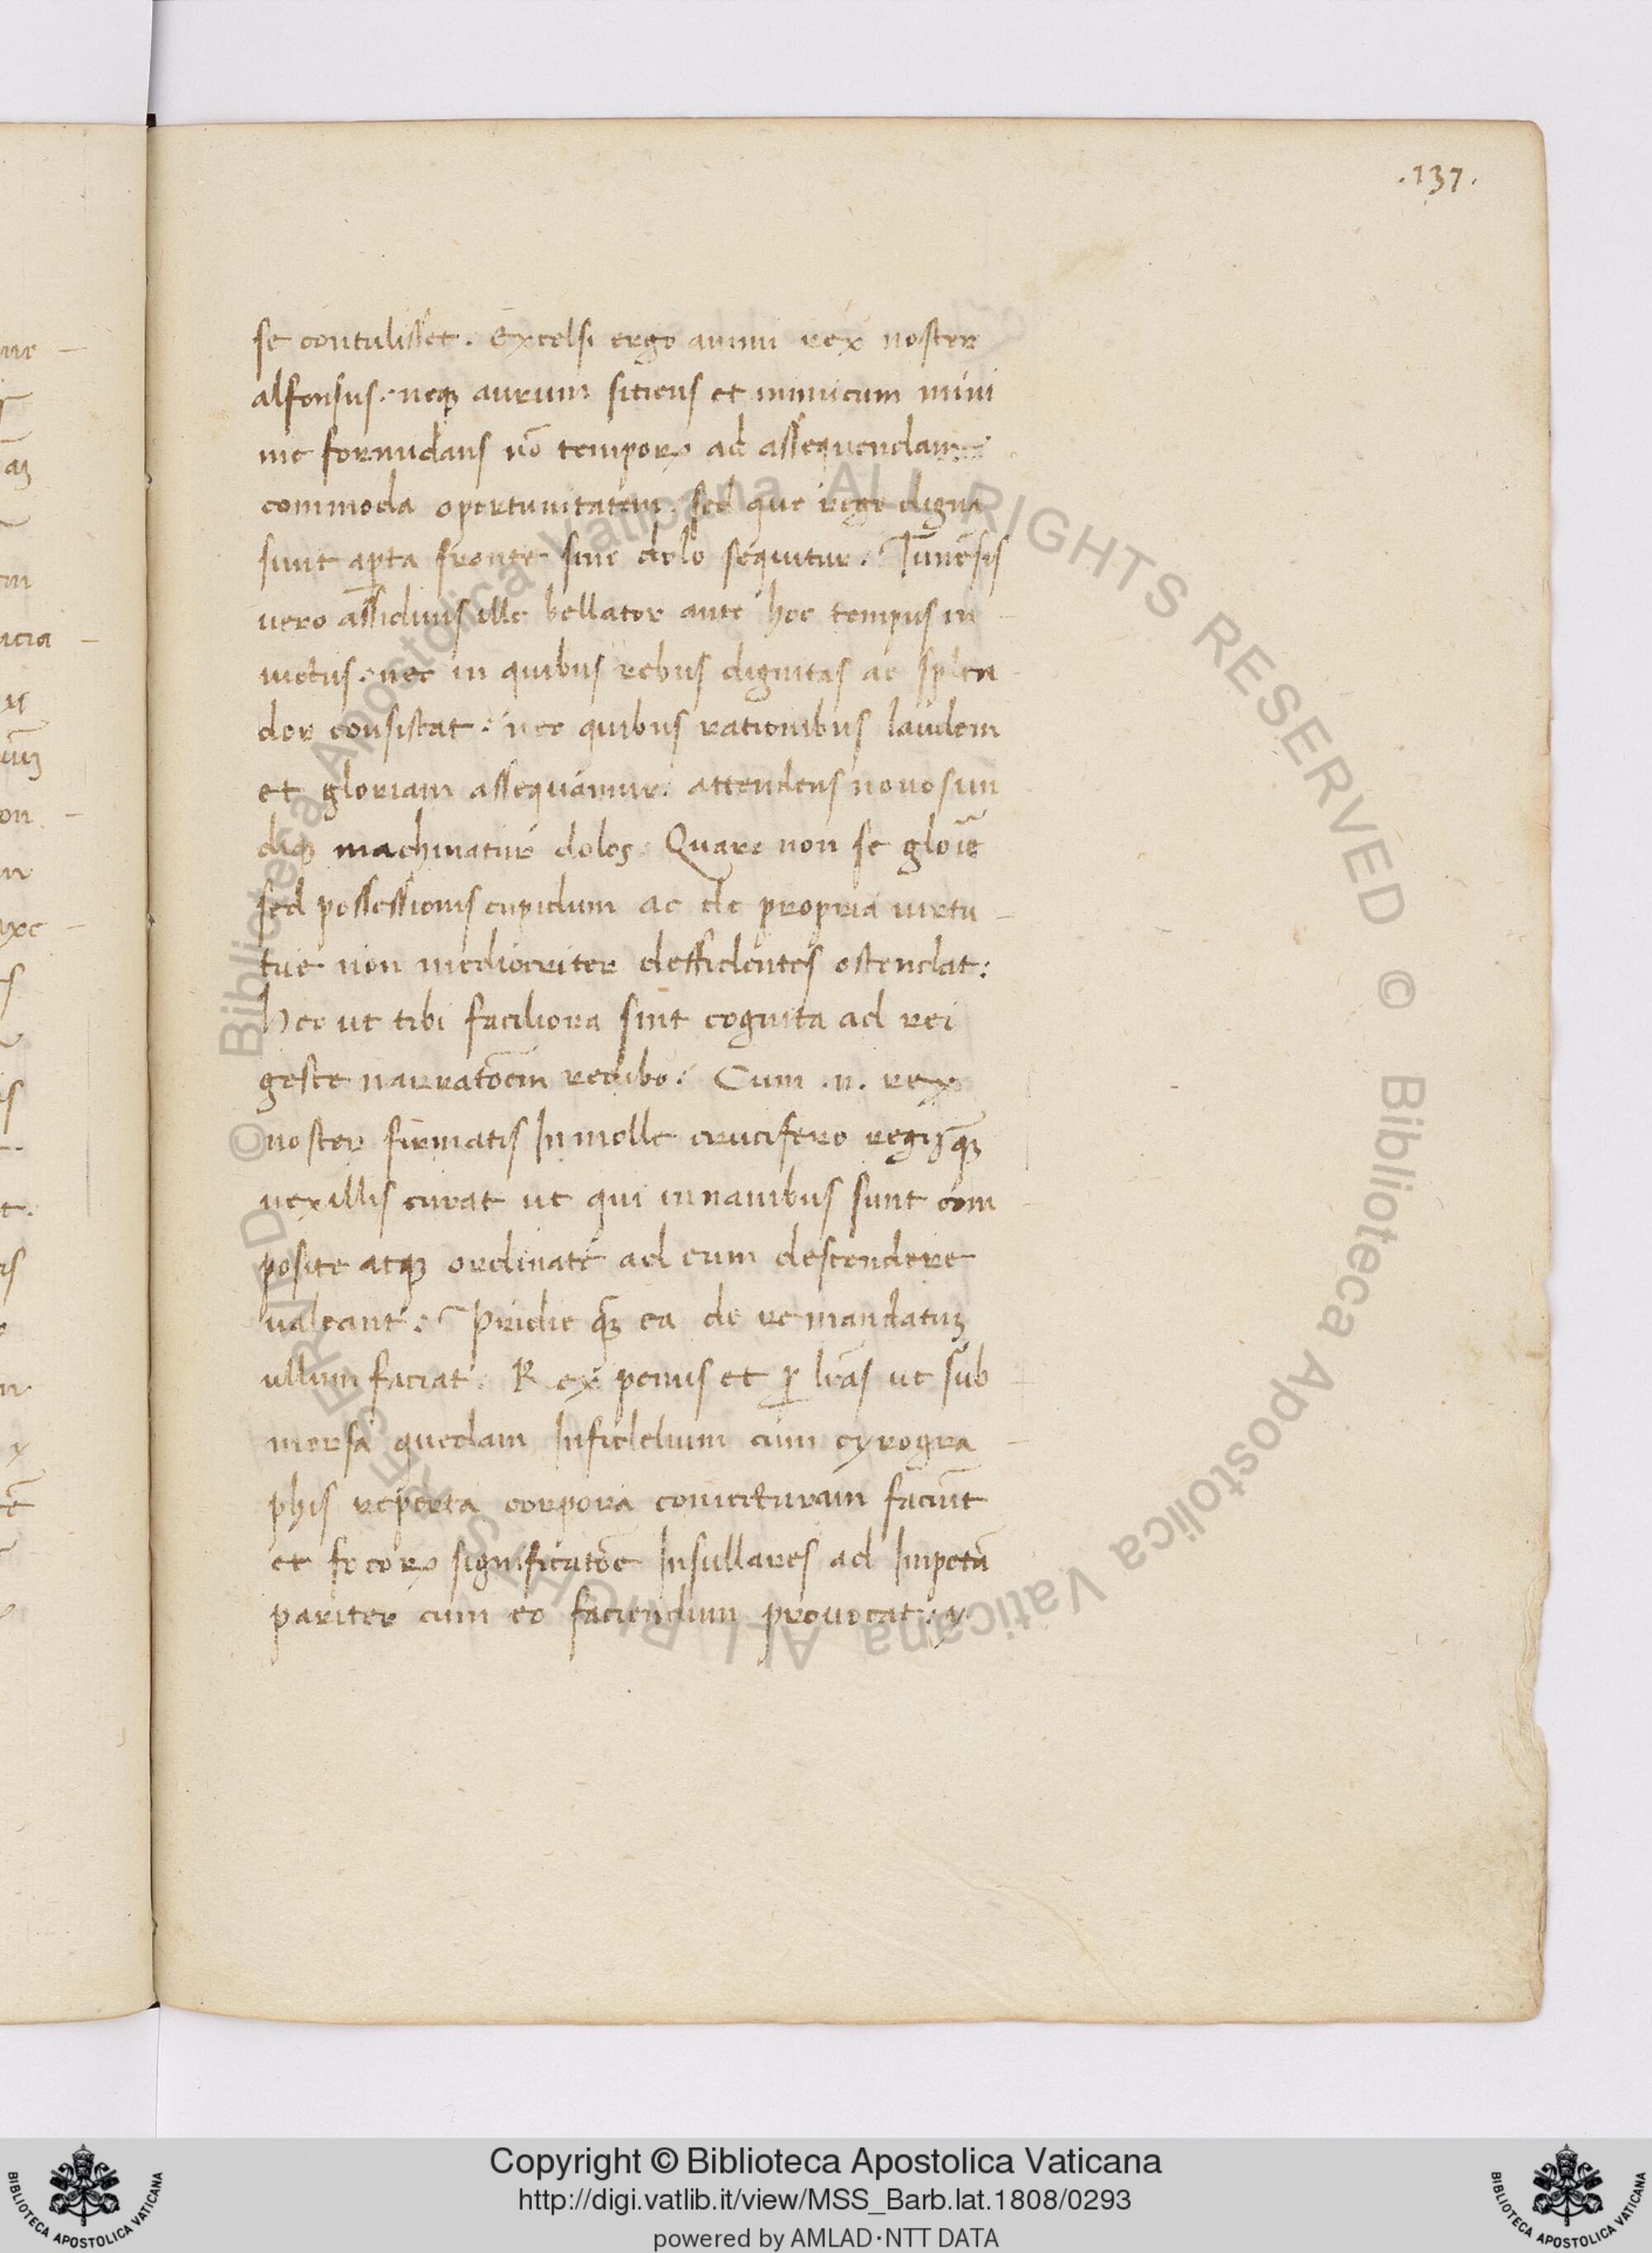 .137.
se contulisset. Excelsi ergo animi rex noster
alfonsus. neqꝫ aurum sitiens et inimicum mini
me formidans nō temporꝝ ad assequendam
commoda oportunitatem. sed que rege digna
sunt aꝑta fronte sine dolo sequitur. Tunēsis
uero assiduus ille bellator ante hoc tempus in
uictus. nec in quibus rebus dignitas ac splen
dor consistat. nec quibus rationibus laudem
et gloriam assequamur. attendens nouos un
diqꝫ machinatur dolos. Quare non se glorie
sed possessionis cupidum ac de propria uirtu
tue non mediocriter deffidentes ostendat:
Hec ut tibi faciliora sint cognita ad rei
geste narratōem redibo. Cum .n. rex
noster firmatis In molle crucifero regijsqꝫ
uexillis curat ut qui in nauibus sunt com
posite atqꝫ ordinate ad eum descendere
ualeant. Pridie qꝫ ea de re mandatuꝫ
ullum faciat. Rex penus et ꝑ lr̄as ut sub
mersa quedam Infidelium cum cyrogra
phis reperta corpora conietturam faciūt
et focorꝝ significatōe Insullares ad Impetū
pariter cum eo faciendum prouocat.
Copyright © Biblioteca Apostolica Vaticana
http://digi.vatlib.it/view/MSS_Barb.lat.1808/0293
powered by AMLAD·NTT DATA